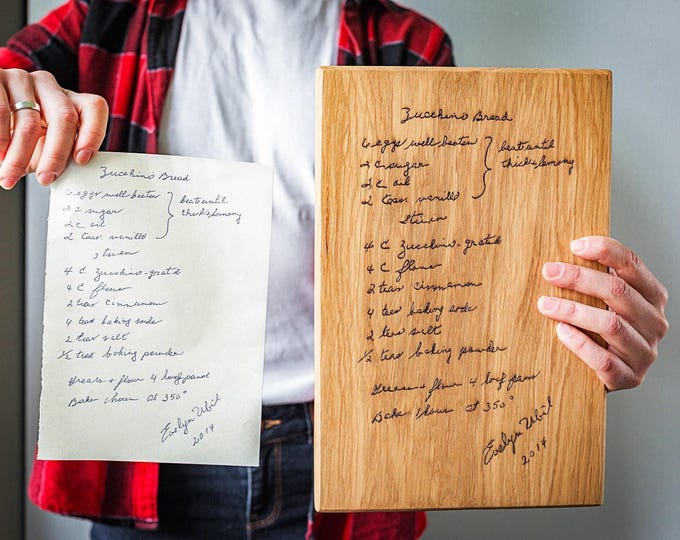 Zucchino Bread
6 eggs well beaten
2 C sugar
2 C oil
2 teas. vanilla
beat until
thick & lemony
4 C Zucchino-grated
4 C flour
2 teas cinnamon
4 teas baking soda
2 teas salt
1/2 teas baking powder
Grease + flour 4 loaf pans
Bake 1 hour at 350°
Evelyn
2014
Zucchino Bread
6 eggs well beaten
2 C sugar
2 C oil
2 teas vanilla
beat until
thick & lemony
4 C Zucchino-grated
4 C flour
2 teas cinnamon
4 teas baking soda
2 teas salt
1/2 teas baking powder
Grease + flour 4 loaf pans
Bake 1 hour at 350°
Evelyn
2014